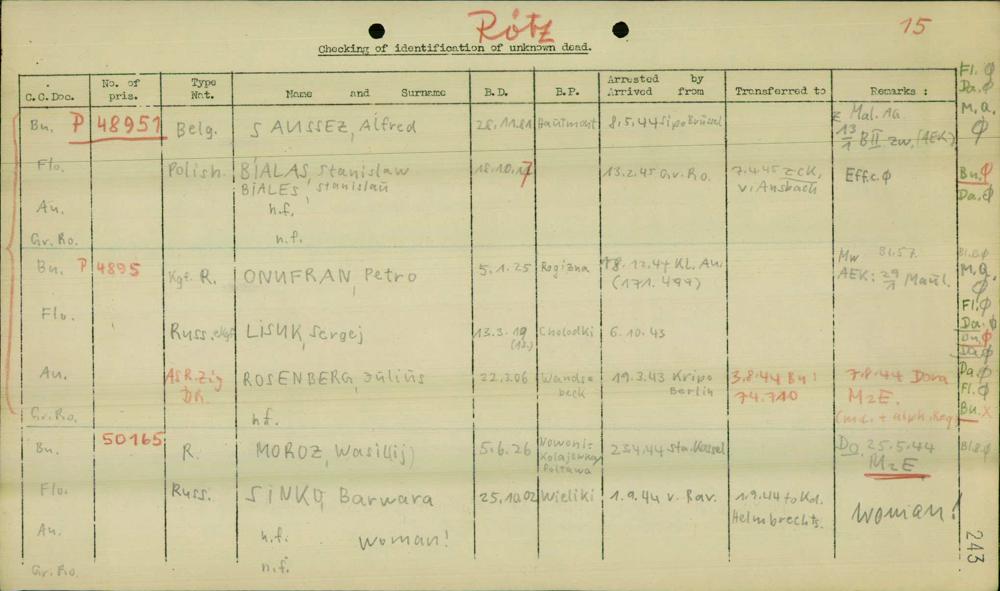 Rötz
15
Checking of identification of unknown dead.
C.C.Doc. No. of pris. Type Nat. Name and Surname B.D. B.P. Arrested by Arrived from Transferred to Remarks :
Bu. P 48951 Belg. SAUSSEZ, Alfred 28.11.81 Hautmast 8.5.44 Sipo Brüssel z Mal. AG.
13/1 B II zw. (AEK)
Flo. Polish BIALAS, Stanislaw 18.10.17 13.2.45 Gr. Ro. 7.4.45 z CK. Eff.c. Ø
BIALES, Stanislau v. Ansbach
Au. n.f.
Gr. Ro. n.f.
Bu. P 4895 Kgf. R. ONUFRAN, Petro 5.1.25 Rogizna 18.12.44 Kl. Au. Mw 81.57.
(171.499) AEK: 29/1
Flo. Russ. LISUK, Sergej 13.3.19 Cholodki 6.10.43
(12.)
Au. AsR. Zig DR. ROSENBERG, Julius 22.3.06 Wandsbeck 19.3.43 Kripo Berlin 3.8.44 Bu! 7.8.44 Dora
74.710 MzE.
Gr. Ro. n.f.
50165
Bu. R. MOROZ, Wasilij 5.6.26 Poltawa 23.4.44 Sta. Kassel Do. 25.5.44
MzE
Flo. Russ. SINKO, Barwara 25.10.02 Wieliki 1.9.44 v. Rav. 1.9.44 to Kd. Helmbrechts. woman!
Au. n.f. woman!
Gr. Ro. n.f.
Fl. Ø
Da. Ø
M.Q.
Ø
Bu. Ø
Da. Ø
M.Q.
Ø
Fl. Ø
Da. Ø
Da. Ø
Fl. Ø
Bu. X
243